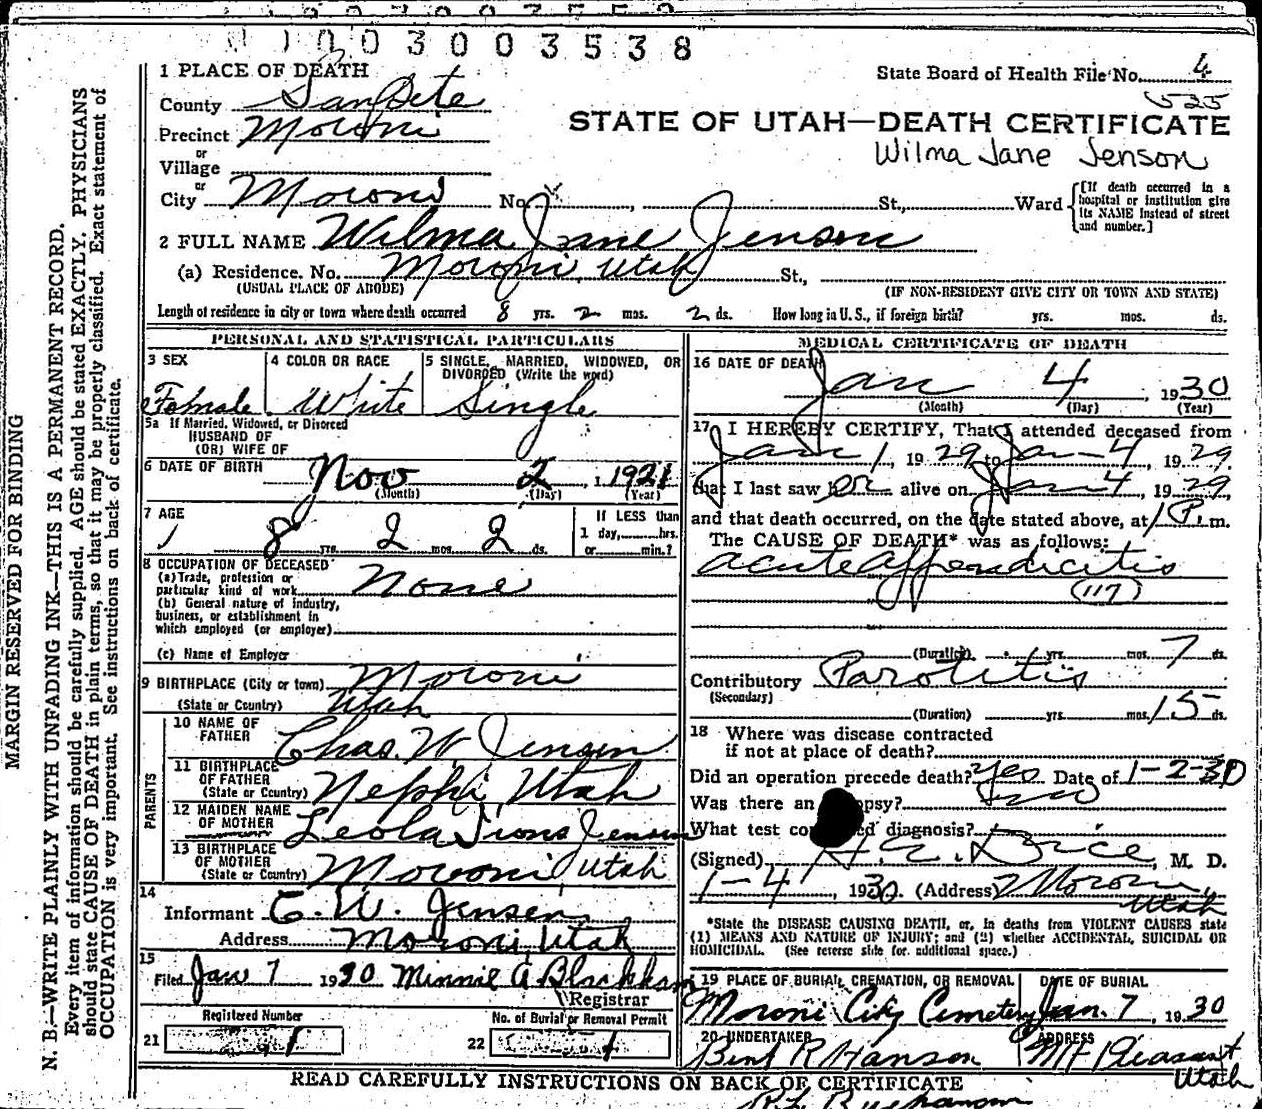 003003538
1 PLACE OF DEATH
State Board of Health File No. 4
County SanPete
525
Precinct Moroni
STATE OF UTAH—DEATH CERTIFICATE
or
Wilma Jane Jenson
Village
or
City Moroni No. , St., Ward
[If death occurred in a hospital or institution give its NAME instead of street and number.]
2 FULL NAME Wilma Jane Jenson
(a) Residence. No. Moroni, Utah St.,
(USUAL PLACE OF ABODE) (IF NON-RESIDENT GIVE CITY OR TOWN AND STATE)
Length of residence in city or town where death occurred 8 yrs. 2 mos. 2 ds. How long in U. S., if foreign birth? yrs. mos. ds.
PERSONAL AND STATISTICAL PARTICULARS
3 SEX 4 COLOR OR RACE 5 SINGLE, MARRIED, WIDOWED, OR
DIVORCED (Write the word)
Female White Single
5a If Married, Widowed, or Divorced
HUSBAND OF
(OR) WIFE OF
6 DATE OF BIRTH Nov 2, 1921
(Month) (Day) (Year)
7 AGE If LESS than
8 yrs. 2 mos. 2 ds. 1 day, hrs.
or min.?
8 OCCUPATION OF DECEASED
(a) Trade, profession or
particular kind of work None
(b) General nature of industry,
business, or establishment in
which employed (or employer)
(c) Name of Employer
9 BIRTHPLACE (City or town) Moroni
(State or Country) Utah
PARENTS
10 NAME OF
FATHER Chas. W Jensen
11 BIRTHPLACE
OF FATHER
(State or Country) Nephi, Utah
12 MAIDEN NAME
OF MOTHER Leola Jensen
13 BIRTHPLACE
OF MOTHER
(State or Country) Moroni, Utah
14
Informant C. W. Jensen
Address Moroni, Utah
15
Filed Jan 7 1930 Minnie A Blackham
Registrar
Registered Number No. of Burial or Removal Permit
21 1 22 1
MEDICAL CERTIFICATE OF DEATH
16 DATE OF DEATH
Jan 4, 1930
(Month) (Day) (Year)
17 I HEREBY CERTIFY, That I attended deceased from
Jan 1, 1929 to Jan 4, 1929,
that I last saw er alive on Jan 4, 1929,
and that death occurred, on the date stated above, at 1 P. m.
The CAUSE OF DEATH* was as follows:
Acute Appendicitis
(117)
(Duration) yrs. mos. 7 ds.
Contributory Parotitis
(Secondary)
(Duration) yrs. mos. 15 ds.
18 Where was disease contracted
if not at place of death?
Did an operation precede death? Yes Date of 1-2-30
Was there an opsy? no
What test co ed diagnosis?
(Signed) , M. D.
1-4, 1930. (Address) Moroni,
Utah
*State the DISEASE CAUSING DEATH, or, in deaths from VIOLENT CAUSES state
(1) MEANS AND NATURE OF INJURY; and (2) whether ACCIDENTAL, SUICIDAL OR
HOMICIDAL. (See reverse side for additional space.)
19 PLACE OF BURIAL, CREMATION, OR REMOVAL DATE OF BURIAL
Moroni City Cemetery Jan. 7, 1930
20 UNDERTAKER ADDRESS
R Hanson Mt Pleasant
Utah
READ CAREFULLY INSTRUCTIONS ON BACK OF CERTIFICATE
MARGIN RESERVED FOR BINDING
N. B.—WRITE PLAINLY WITH UNFADING INK—THIS IS A PERMANENT RECORD.
Every item of information should be carefully supplied. AGE should be stated EXACTLY. PHYSICIANS
should state CAUSE OF DEATH in plain terms, so that it may be properly classified. Exact statement of
OCCUPATION is very important. See instructions on back of certificate.